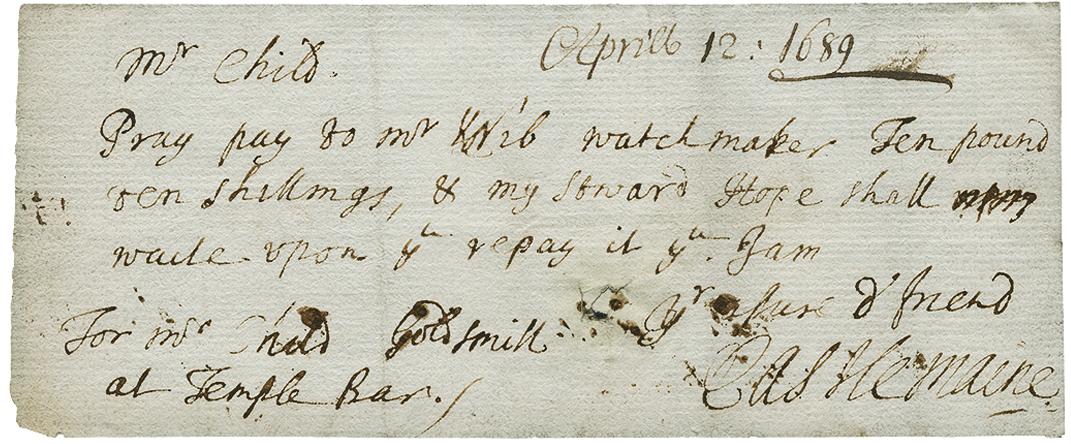 Mr Child.
Aprill 12: 1689
Pray pay to mr Wib watchmaker Ten pound
ten shillings, & my steward Hope shall
waite upon yu repay it yu. I am
yr sure d' friend
For mr Child Goldsmith
at Temple Bar.
Castlemaine